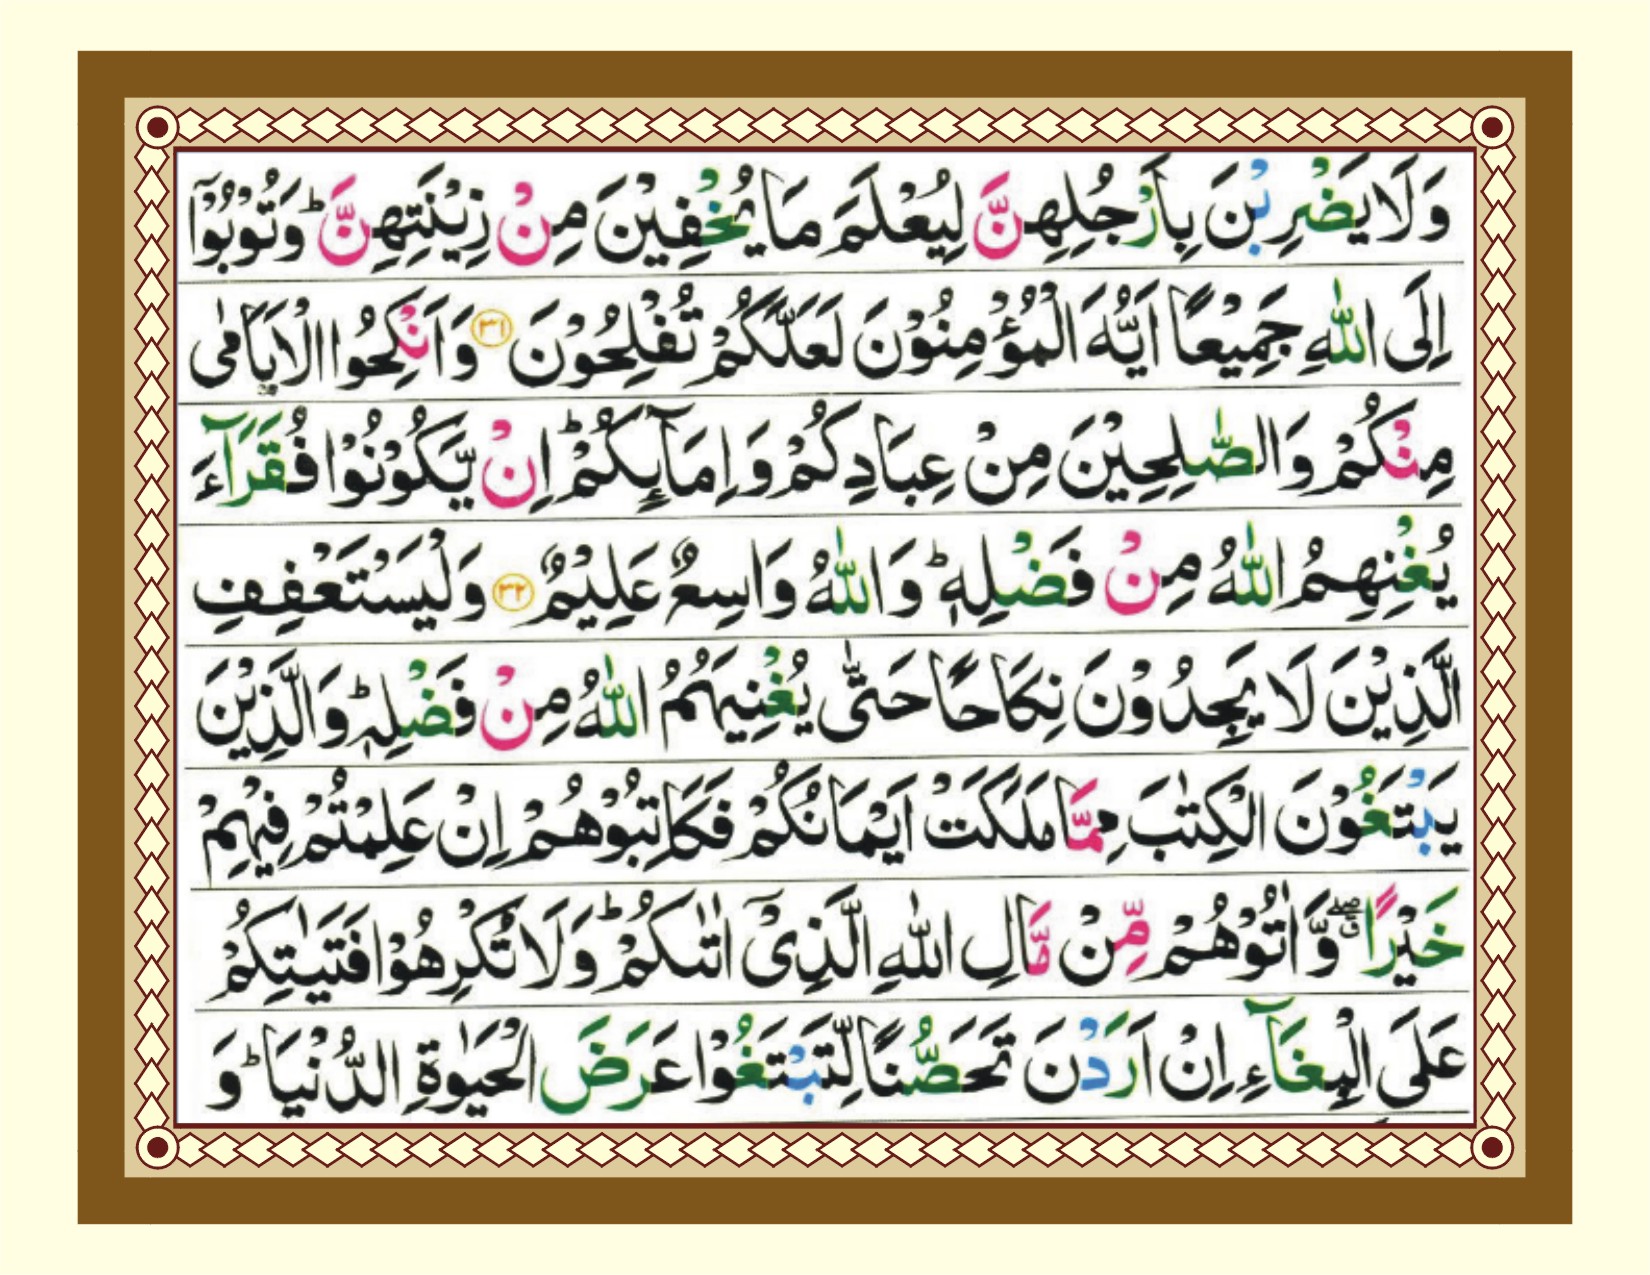 وَلَا يَضْرِبْنَ بِاَرْجُلِهِنَّ لِيُعْلَمَ مَا يُخْفِيْنَ مِنْ زِيْنَتِهِنَّ ؕ وَتُوْبُوْۤا
اِلَى اللّٰهِ جَمِيْعًا اَيُّهَ الْمُؤْمِنُوْنَ لَعَلَّكُمْ تُفْلِحُوْنَ ﴿۳۱﴾ وَاَنْكِحُوا الْاَيَامٰى
مِنْكُمْ وَالصّٰلِحِيْنَ مِنْ عِبَادِكُمْ وَاِمَآئِكُمْ ؕ اِنْ يَّكُوْنُوْا فُقَرَآءَ
يُغْنِهِمُ اللّٰهُ مِنْ فَضْلِهٖ ؕ وَاللّٰهُ وَاسِعٌ عَلِيْمٌ ﴿۳۲﴾ وَلْيَسْتَعْفِفِ
الَّذِيْنَ لَا يَجِدُوْنَ نِكَاحًا حَتّٰى يُغْنِيَهُمُ اللّٰهُ مِنْ فَضْلِهٖ ؕ وَالَّذِيْنَ
يَبْتَغُوْنَ الْكِتٰبَ مِمَّا مَلَكَتْ اَيْمَانُكُمْ فَكَاتِبُوْهُمْ اِنْ عَلِمْتُمْ فِيْهِمْ
خَيْرًا ۖق وَّاٰتُوْهُمْ مِّنْ مَّالِ اللّٰهِ الَّذِيْۤ اٰتٰىكُمْ ؕ وَلَا تُكْرِهُوْا فَتَيٰتِكُمْ
عَلَى الْبِغَآءِ اِنْ اَرَدْنَ تَحَصُّنًا لِّتَبْتَغُوْا عَرَضَ الْحَيٰوةِ الدُّنْيَا ؕ وَ